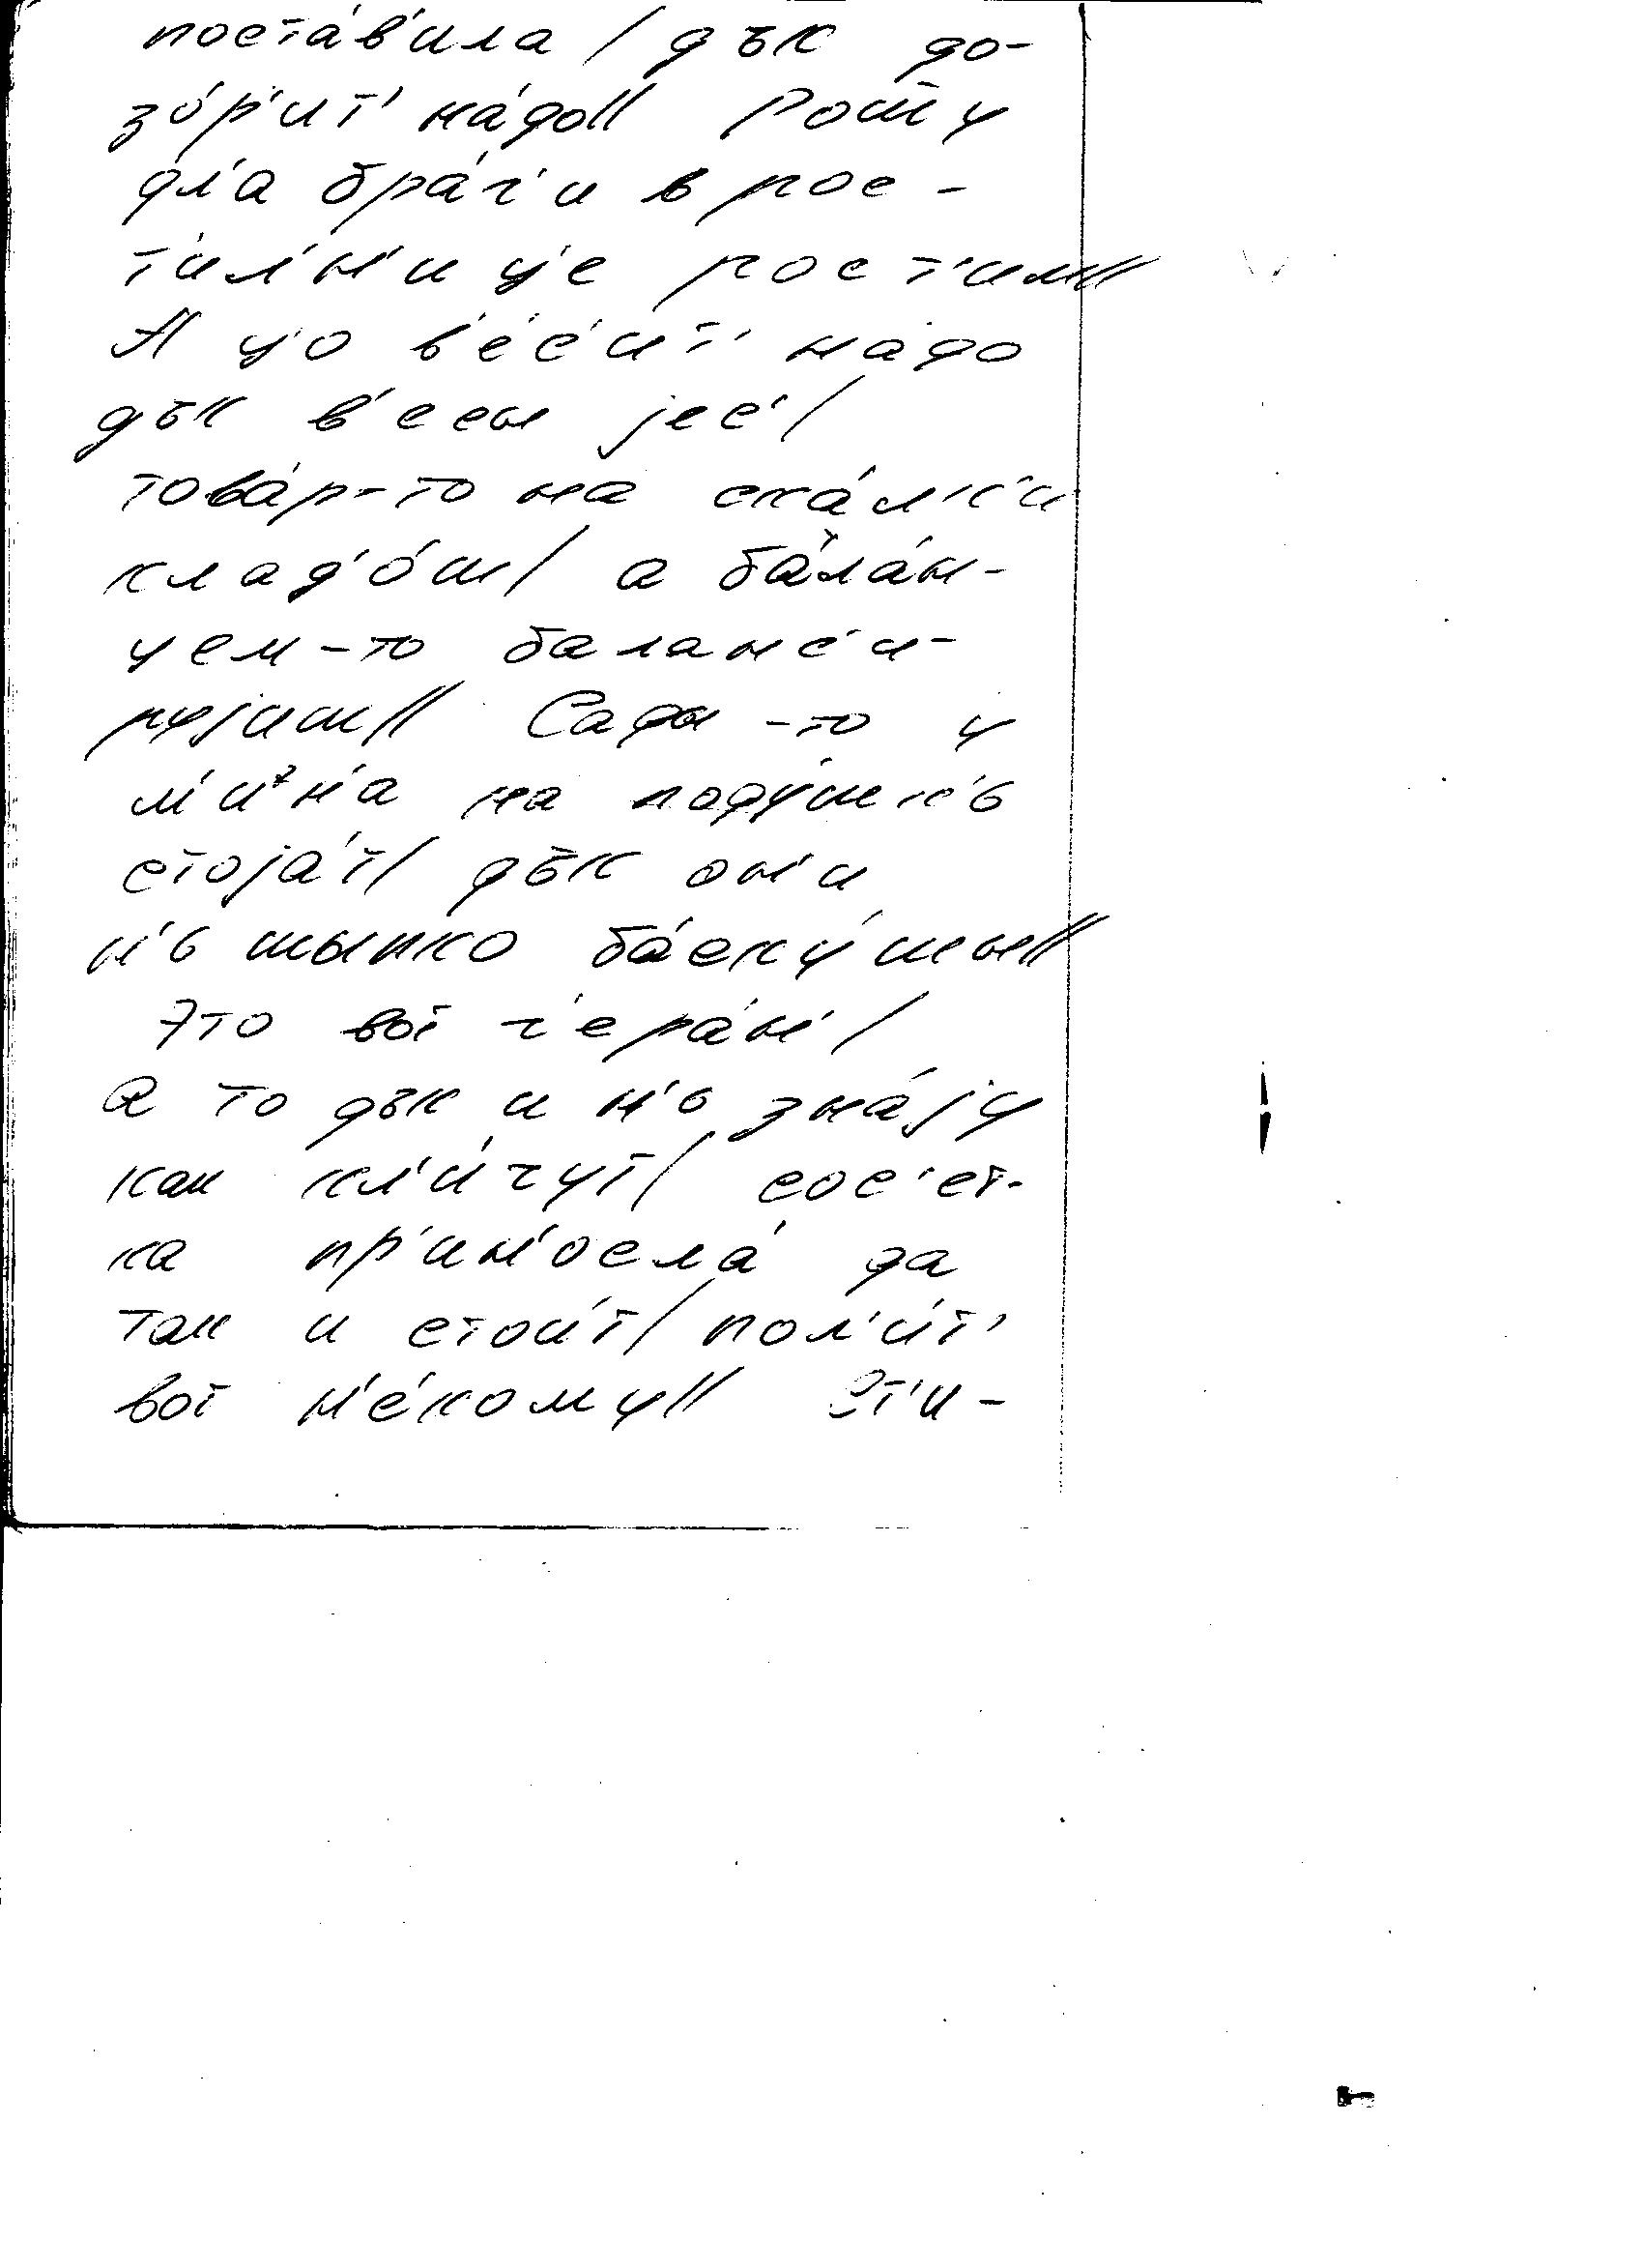 поста́в'ила / дък до-
зо́р'ит' на́до// Рошшу
дл'а бра́г'и в рос-
т'ил'н'иц'е рост'им//
А ц'о в'е́с'ит' надо
дък в'есы jес'/
това́р-то на ска́л'к'и
клад'о́ш/ а ба̀ла́н-
цем-то баланс'и-
руjиш// Сады-то у
м'иэн'а на поду́шк'ь
стоjа́т/ дък он'и
н'ь шыпко ба́ску́шы//
Это вот г'ера́н'/
а то дък и н'ь зна́jу
как кл'и́чут/ сос'ет-
ка пр'ин'осла́ да
так и стои́т/ пол'и́т'
вот н'е́кому// Эт'и-